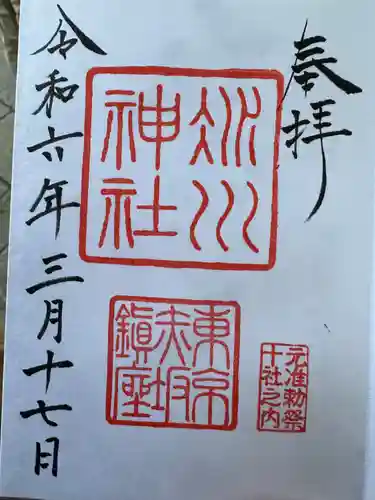 奉拝
氷川
神社
東京
赤坂
鎮座
元准勅祭
十社之内
令和六年三月十七日